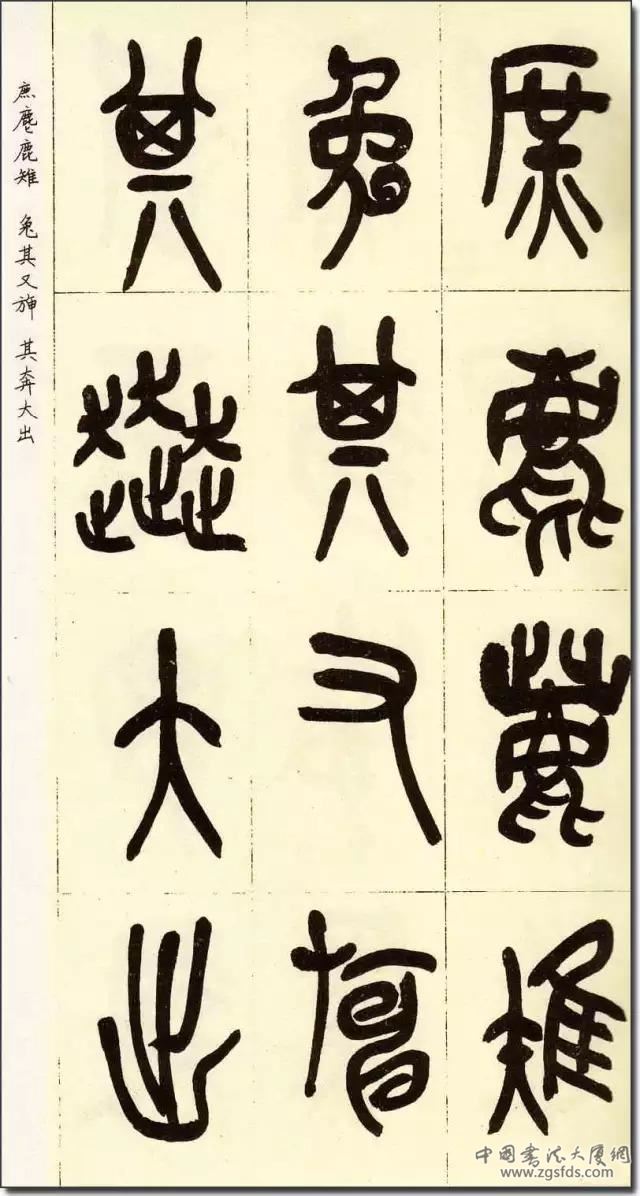 庶麀鹿雉
兔其又
其奔大出
庶麀鹿雉 兔其又 其奔大出
中国书法大厦網
www.zgsfds.com